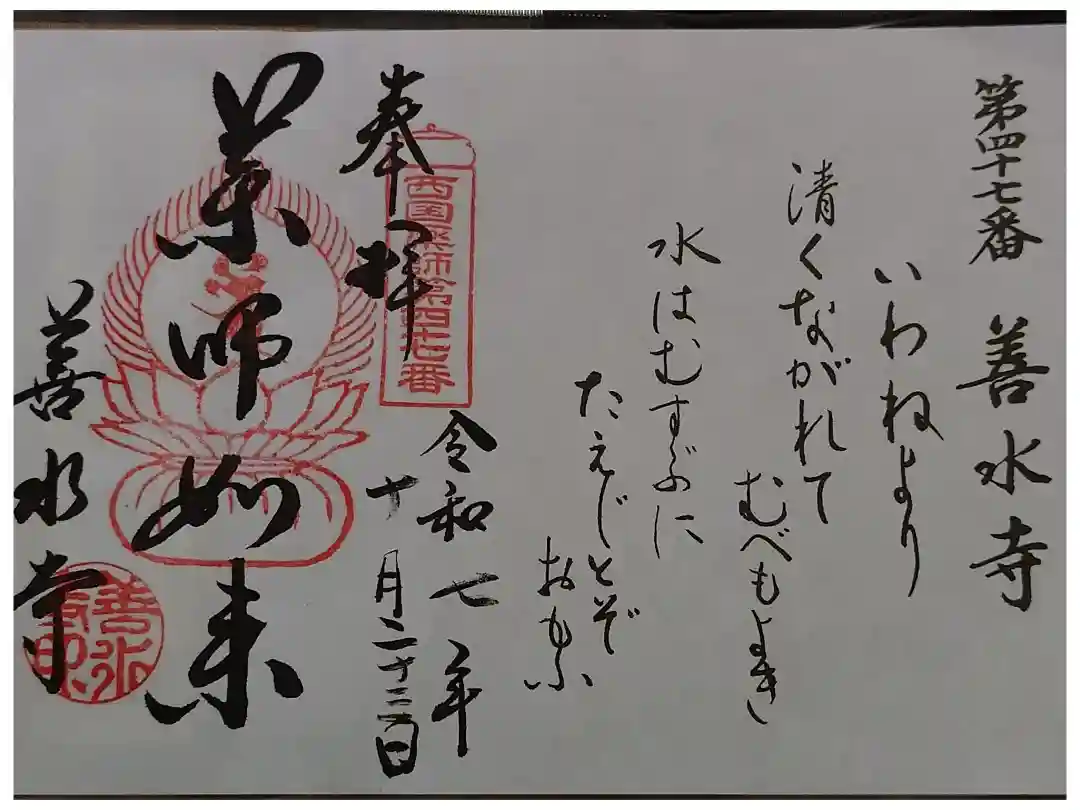 第四十七番 善水寺
いわねより
清くながれて
むべもよき
水はむすぶに
たえじとぞ
おもふ
奉拝
西国薬師第四十七番
令和七年
十月二十三日
薬師如来
善水寺
善水寺印